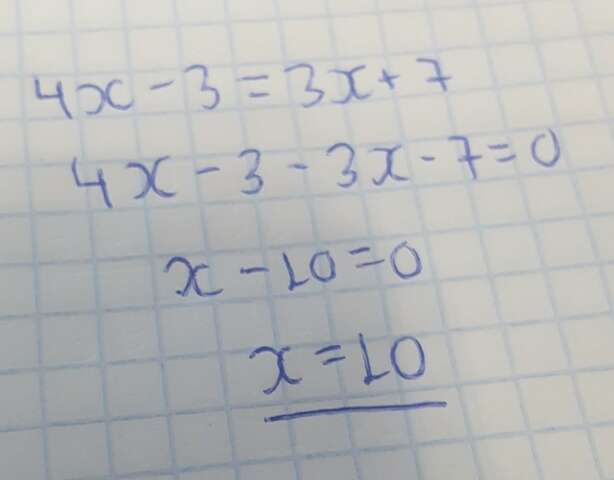 4x - 3 = 3x + 7
4x - 3 - 3x - 7 = 0
x - 10 = 0
x = 10